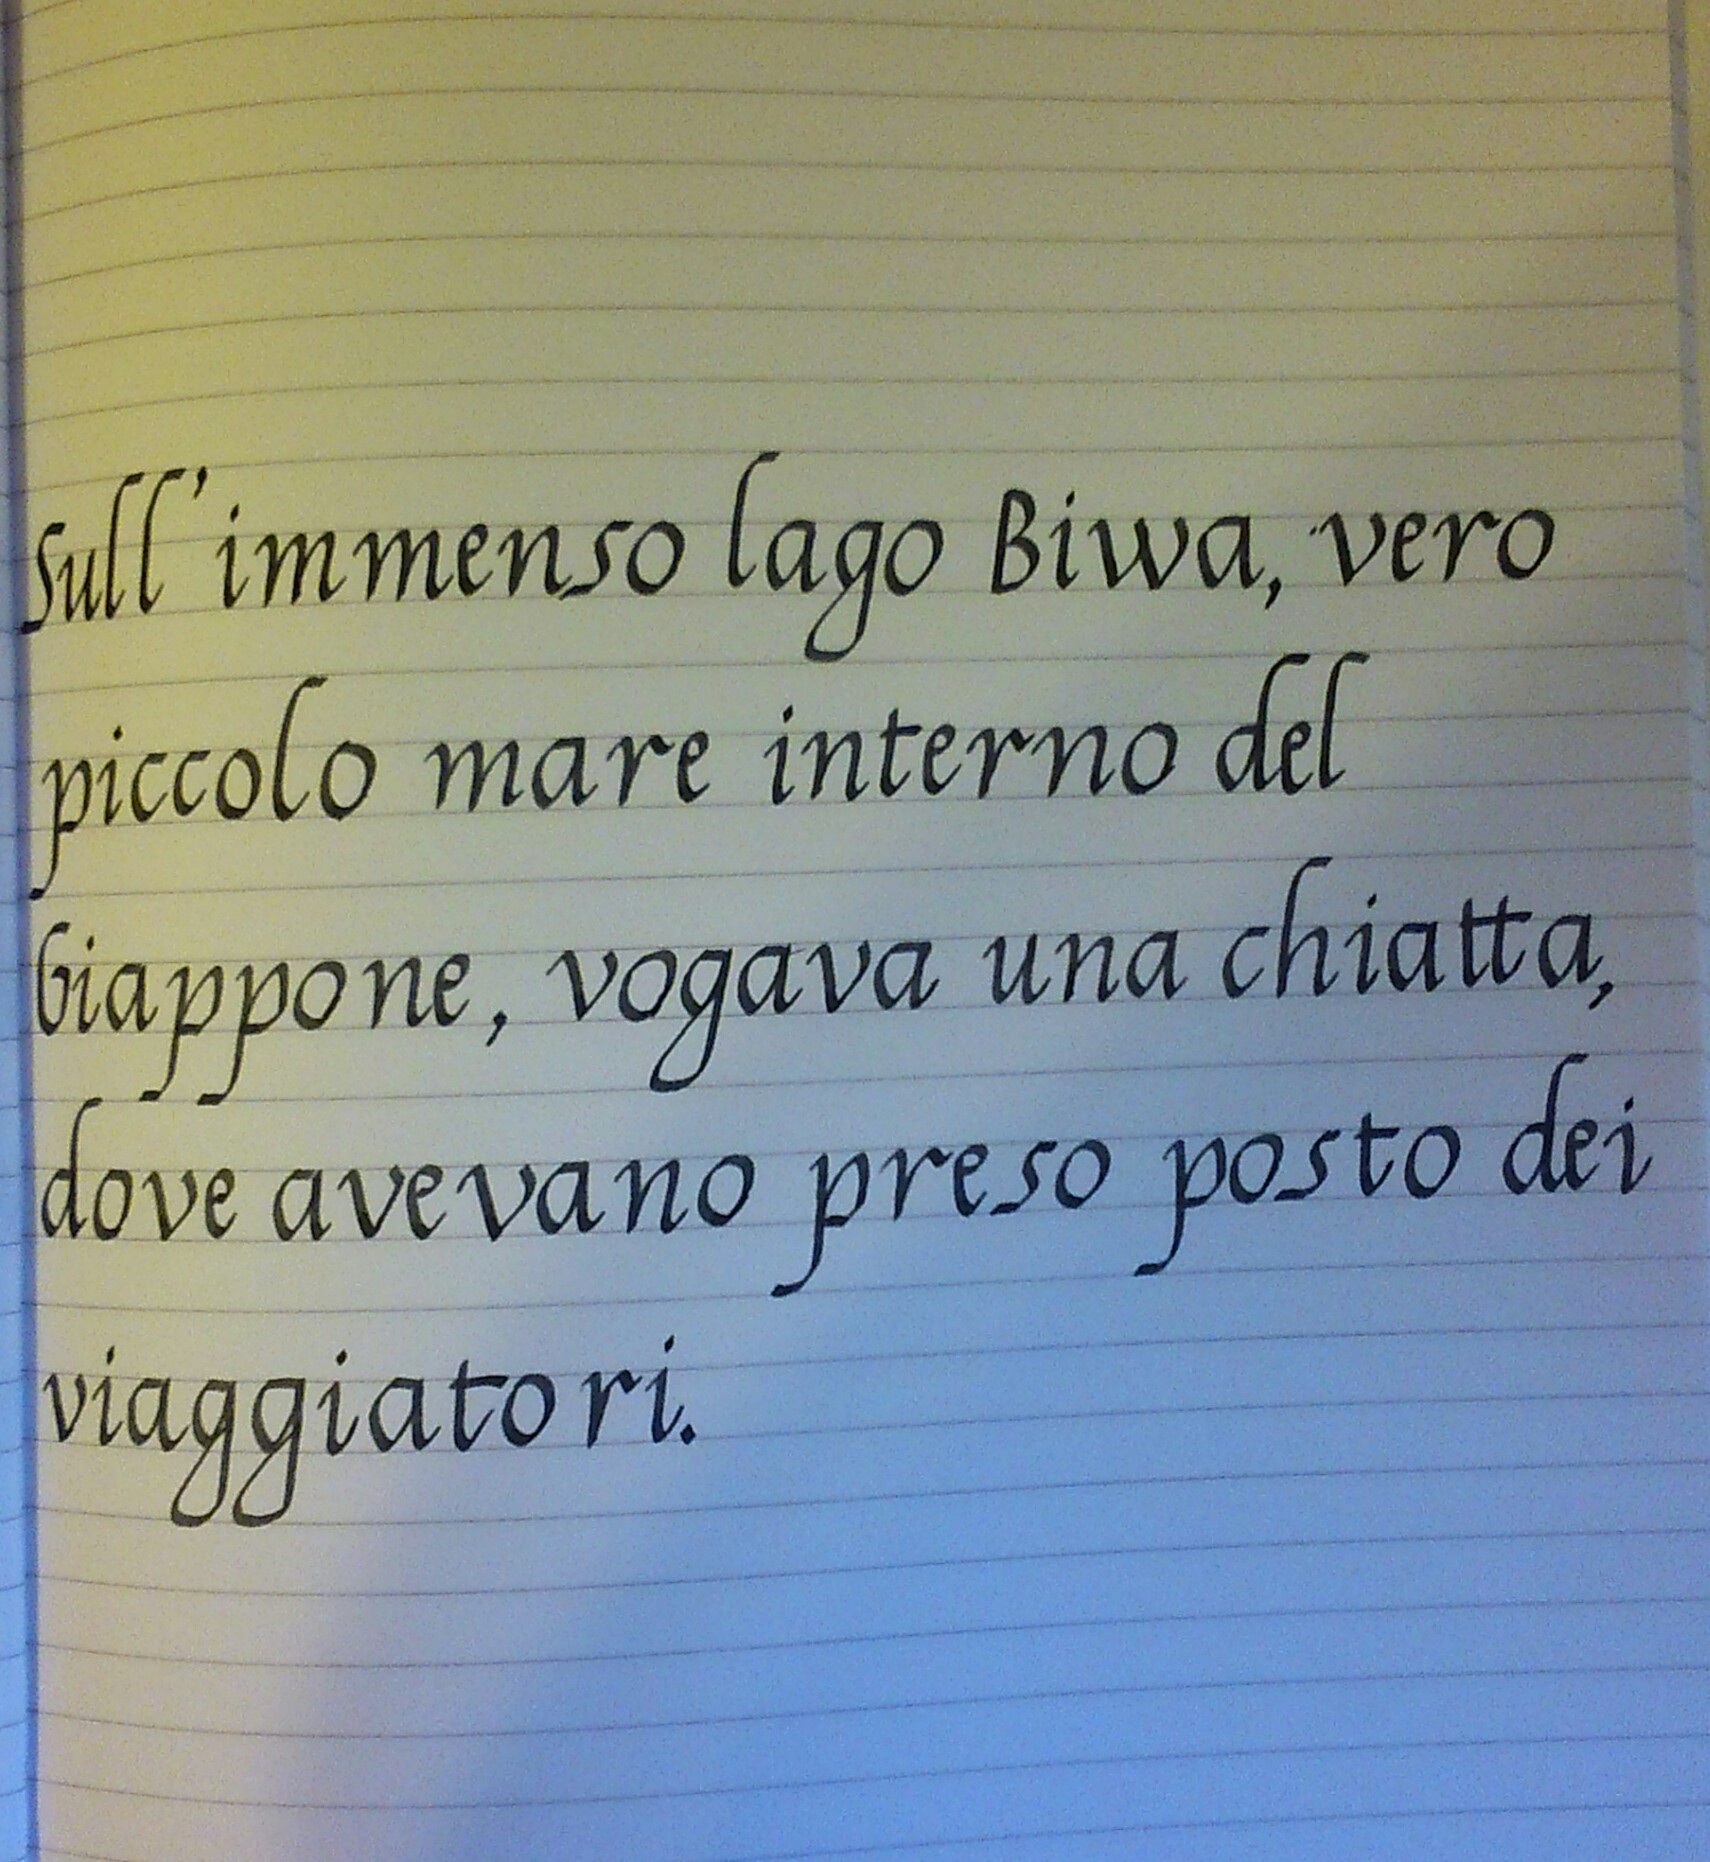 Sull'immenso lago Biwa, vero
piccolo mare interno del
Giappone, vogava una chiatta,
dove avevano preso posto dei
viaggiatori.